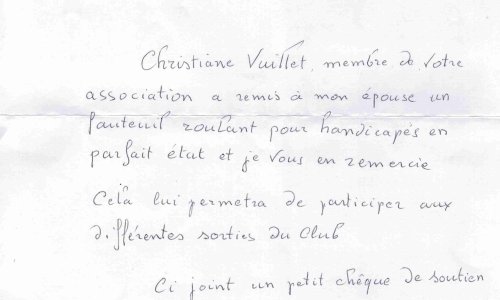 Christiane Vuillet, membre de votre
association a remis à mon épouse un
fauteuil roulant pour handicapés en
parfait état et je vous en remercie
Celà lui permetra de participer aux
différentes sorties du Club
Ci joint un petit chêque de soutien